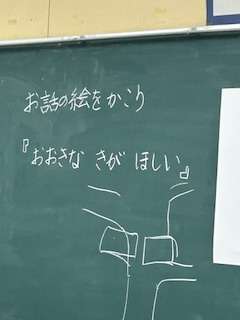 お話の絵をかこう
『おおきな きが ほしい』